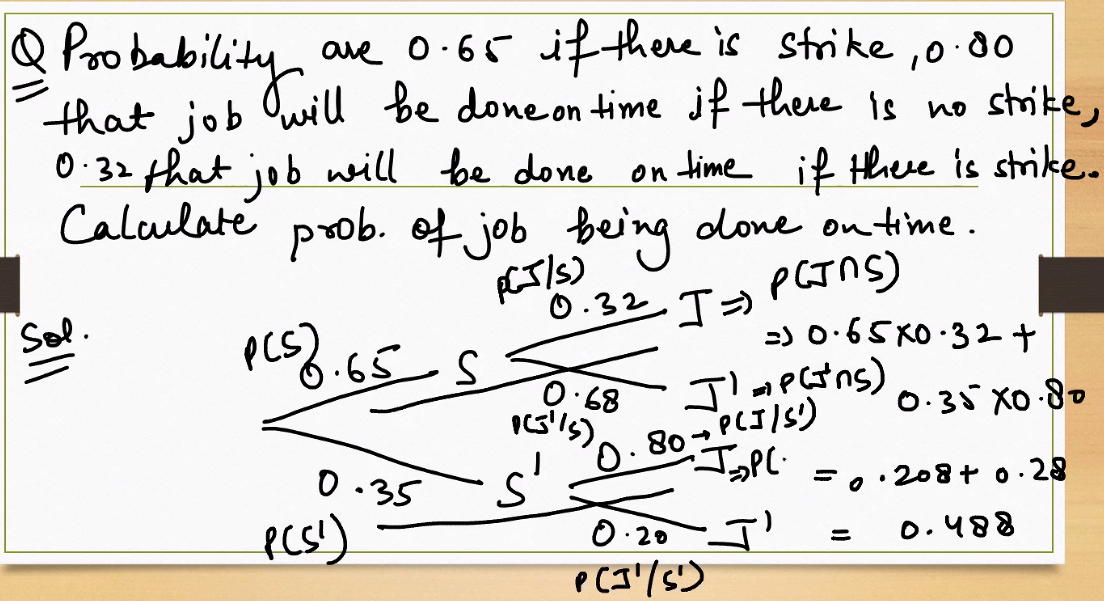 Q Probability are 0.65 if there is strike, 0.80
that job will be done on time if there is no strike,
0.32 that job will be done on time if there is strike.
Calculate prob. of job being done on time.
Sol.
P(S)
0.65
S
P(J/S)
0.32
J ⇒ P(J∩S)
⇒ 0.65×0.32 +
0.68
P(J'/S)
J' ⇒ P(J'∩S)
0.35×0.80
0.35
P(S')
S'
0.80 → P(J/S')
J ⇒ P(.
= 0.208 + 0.28
0.20
J'
= 0.488
P(J'/S')